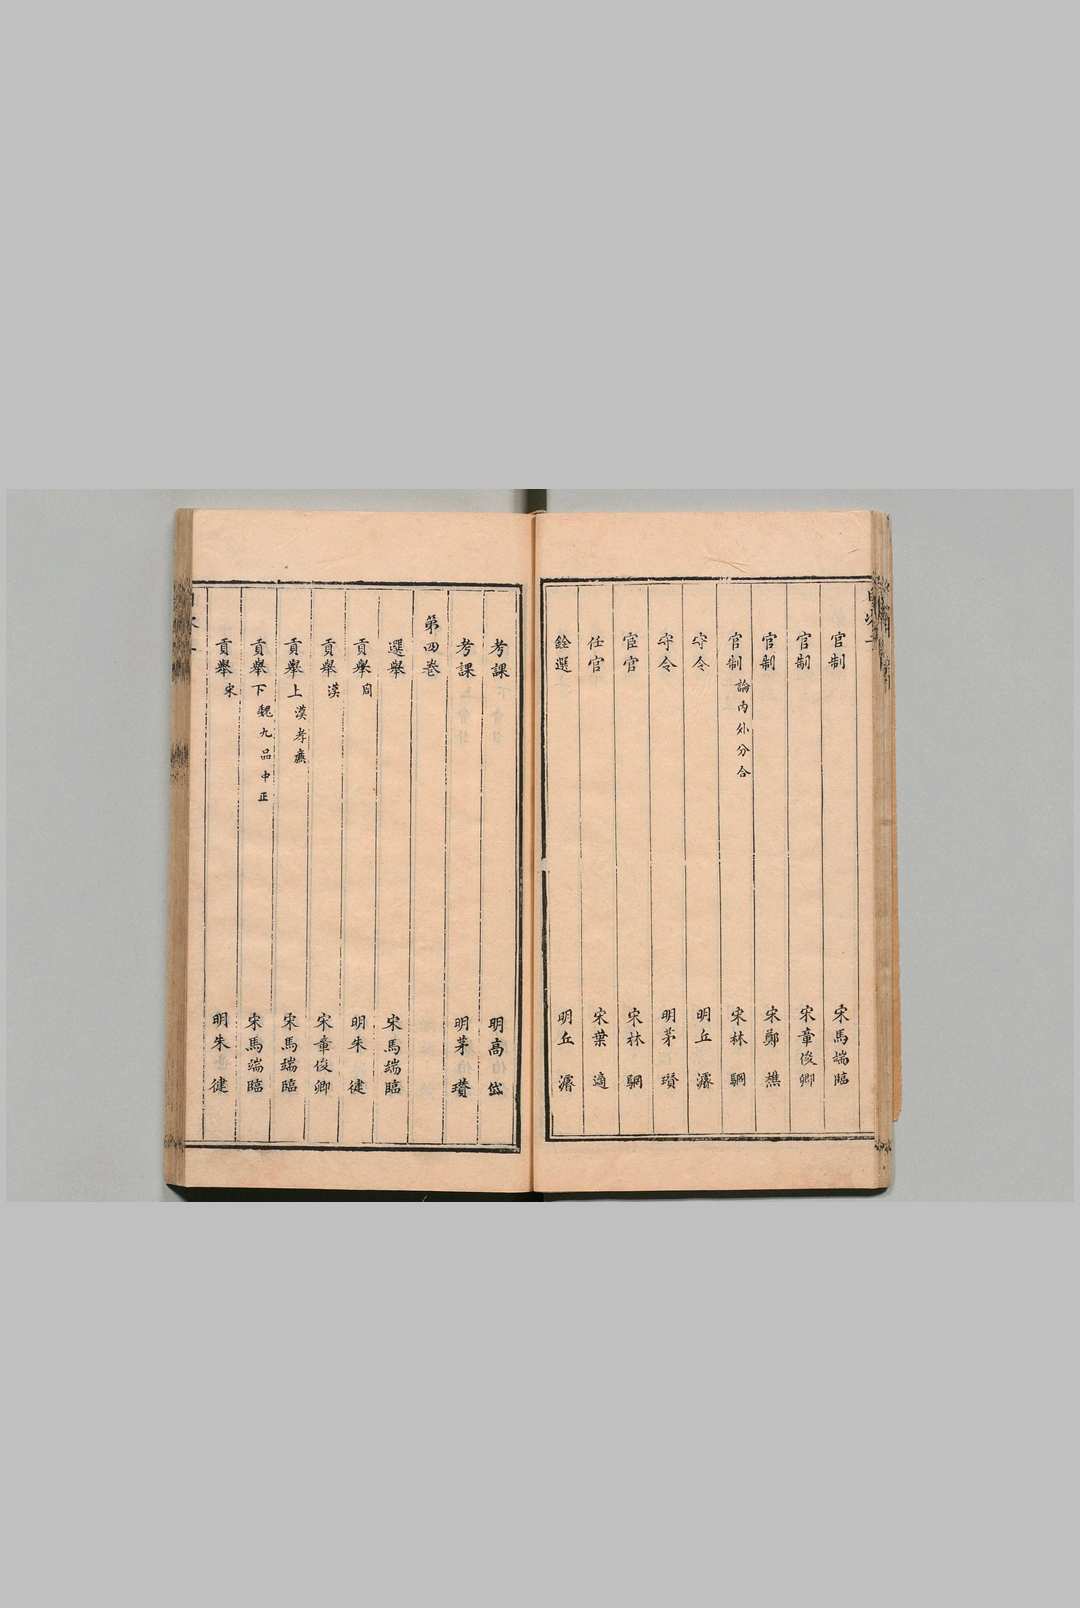 官制 宋馬端臨
官制 宋章俊卿
官制 宋鄭樵
官制 論內外分合 宋林駧
守令 明丘濬
守令 明茅瓚
宦官 宋林駧
任官 宋葉適
銓選 明丘濬
考課 明高岱
考課 明茅瓚
第四卷
選舉 宋馬端臨
貢舉 周 明朱健
貢舉 漢 宋章俊卿
貢舉上 漢孝廉 宋馬端臨
貢舉下 魏九品中正 宋馬端臨
貢舉 宋 明朱健